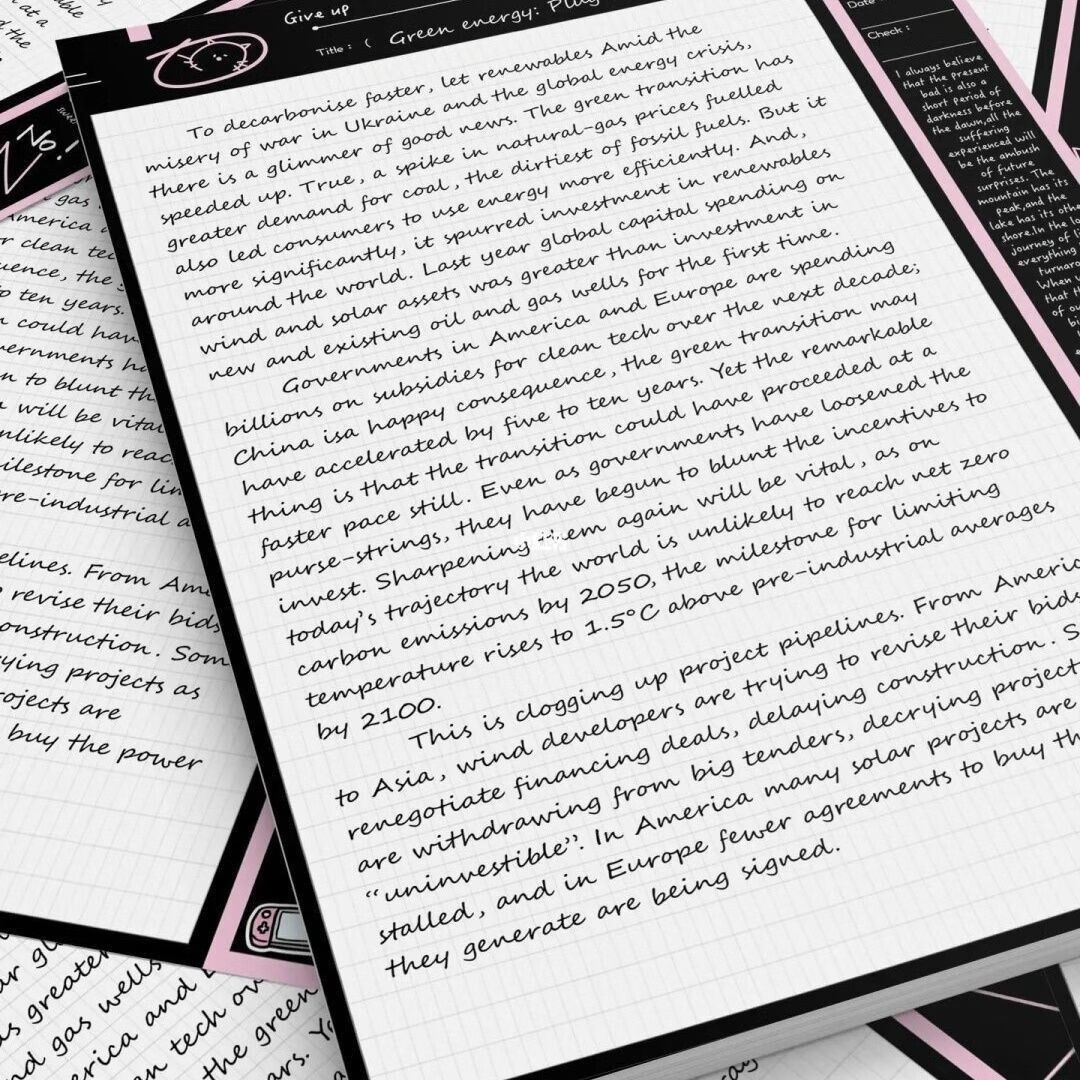 Give up
Title : ( Green energy: Plug
To decarbonise faster, let renewables Amid the
misery of war in Ukraine and the global energy crisis,
there is a glimmer of good news. The green transition has
speeded up. True, a spike in natural-gas prices fuelled
greater demand for coal, the dirtiest of fossil fuels. But it
also led consumers to use energy more efficiently. And,
more significantly, it spurred investment in renewables
around the world. Last year global capital spending on
wind and solar assets was greater than investment in
new and existing oil and gas wells for the first time.
Governments in America and Europe are spending
billions on subsidies for clean tech over the next decade;
China isa happy consequence, the green transition may
have accelerated by five to ten years. Yet the remarkable
thing is that the transition could have proceeded at a
faster pace still. Even as governments have loosened the
purse-strings, they have begun to blunt the incentives to
invest. Sharpening them again will be vital, as on
today's trajectory the world is unlikely to reach net zero
carbon emissions by 2050, the milestone for limiting
temperature rises to 1.5°C above pre-industrial averages
by 2100.
This is clogging up project pipelines. From America
to Asia, wind developers are trying to revise their bids
renegotiate financing deals, delaying construction. S
are withdrawing from big tenders, decrying project
"uninvestible". In America many solar projects are
stalled, and in Europe fewer agreements to buy th
they generate are being signed.
Date
Check :
I always believe
that the present
bad is also a
short period of
darkness before
the dawn,all the
suffering
experienced will
be the ambush
of future
surprises. The
mountain has its
peak,and the
lake has its othe
shore.In the lo
journey of li
everything
turnaro
When
that th
of ou
bi
at a
the
Sweet
No!
gas
America
r clean tec
uence, the
to ten years.
n could hav
vernments ha
n to blunt th
will be vital
nlikely to reac
ilestone for lim
pre-industrial a
elines. From Am
revise their bids
onstruction. Som
ying projects as
rojects are
buy the power
ar gl
as greater
nd gas wells
erica and E
n tech ov
the green
ars. Y